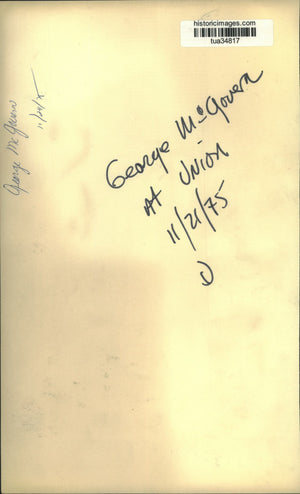 historicimages.com
tua34817
George McGovern
11/21/75
George McGovern
At Union
11/21/75